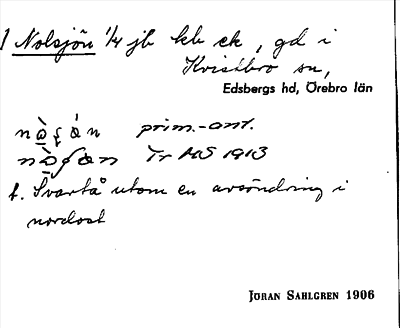 1 Nolsjön 1/4 jb kb ek, gd i
Kvistbro sn,
Edsbergs hd, Örebro län
prim.-ant.
1913
t. Svartå utom en avsöndring i
nordost
JÖRAN SAHLGREN 1906